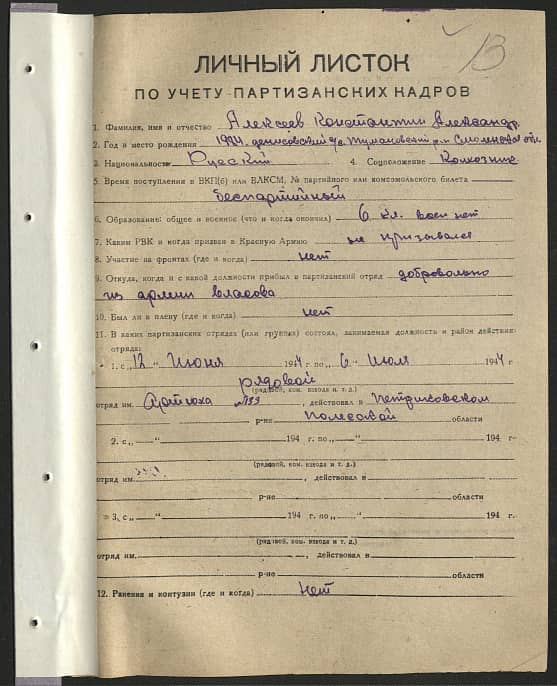 13
ЛИЧНЫЙ ЛИСТОК
ПО УЧЕТУ ПАРТИЗАНСКИХ КАДРОВ
1. Фамилия, имя и отчество Алексеев Константин Александр.
2. Год и место рождения 1924. денисовский Тумановский р-н Смоленской обл.
3. Национальность Русский 4. Соцположение Колхозник
5. Время поступления в ВКП(б) или ВЛКСМ, № партийного или комсомольского билета
беспартийный
6. Образование: общее и военное (что и когда окончил) 6 кл. воен нет
7. Каким РВК и когда призван в Красную Армию не призывался
8. Участие на фронтах (где и когда) нет
9. Откуда, когда и с какой должности прибыл в партизанский отряд добровольно
из армии власова
10. Был ли в плену (где и когда) нет
11. В каких партизанских отрядах (или группах) состоял, занимаемая должность и район действия
отряда:
1. с „12“ Июня 1944 г. по „6“ Июля 1944 г.
рядовой
(рядовой, ком. взвода и т. д.)
отряд им. №133, действовал в Петриковском
р-не Полесской области
2. с „ “ 194 г. по „ “ 194 г.
(рядовой, ком. взвода и т. д.)
отряд им. , действовал в
р-не области
3. с „ “ 194 г. по „ “ 194 г.
(рядовой, ком. взвода и т. д.)
отряд им. , действовал в
р-не области
12. Ранения и контузии (где и когда) нет